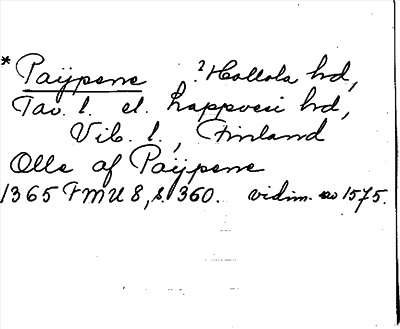 * Paÿpene ?Hollola hd,
Tav. l. el. Lappvesi hd,
Vib. l., Finland
Olle af Paÿpene
1365 FMU 8, s. 360. vidim. av 1575.